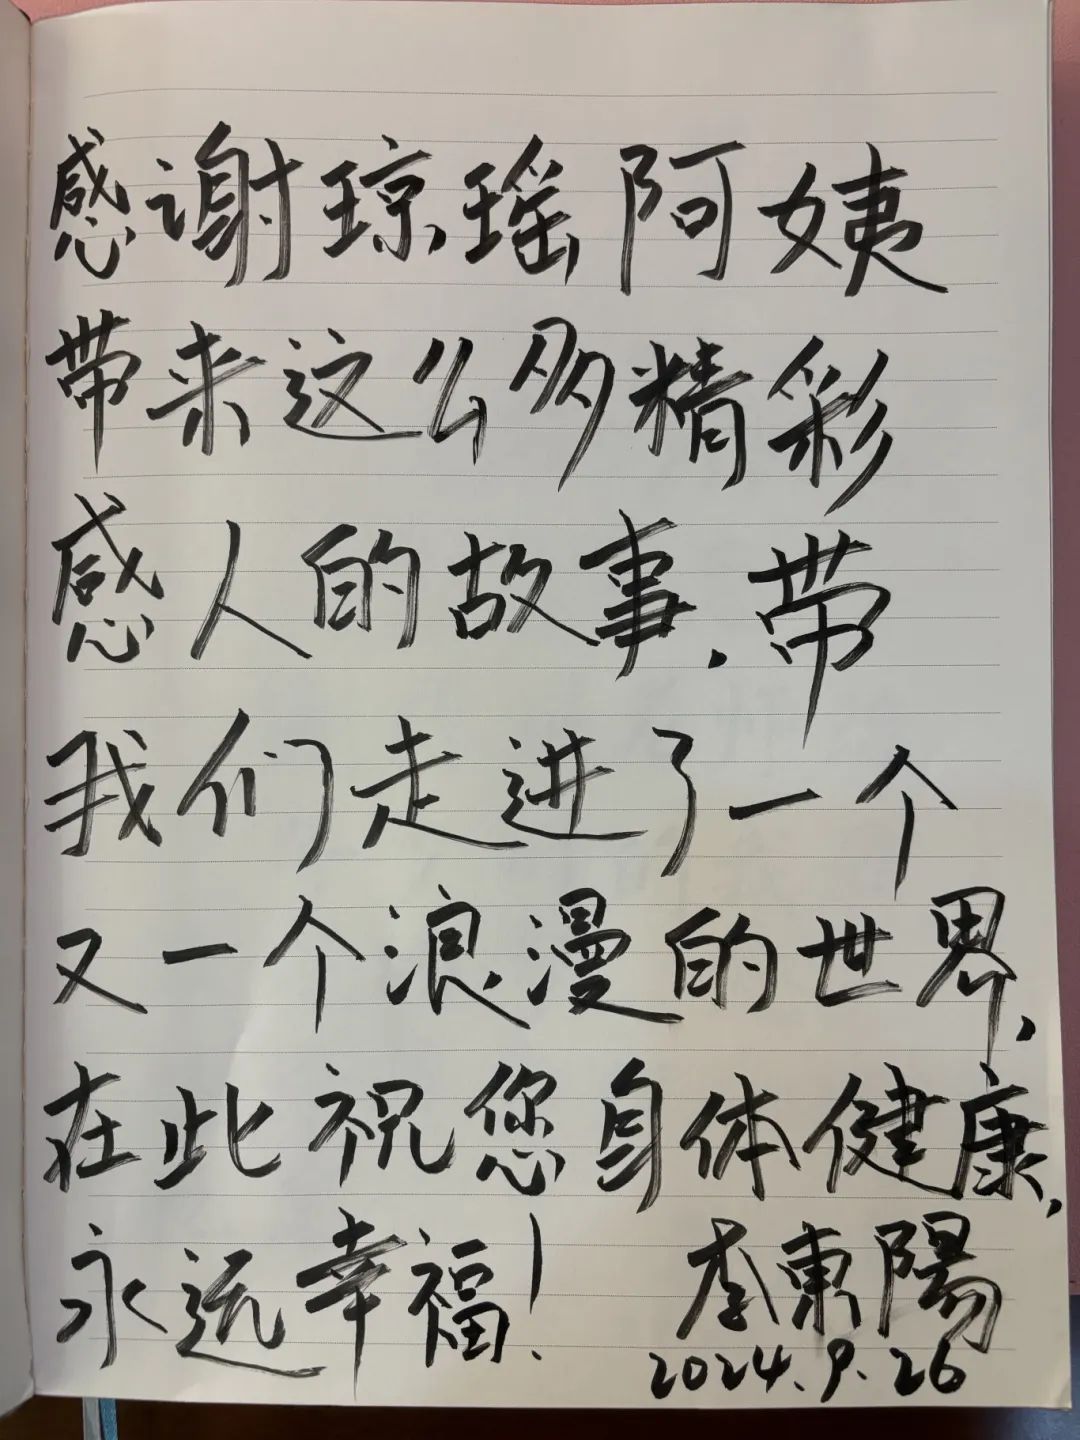 感谢琼瑶阿姨
带来这么多精彩
感人的故事，带
我们走进了一个
又一个浪漫的世界，
在此祝您身体健康，
永远幸福！ 李東陽
2024.9.26